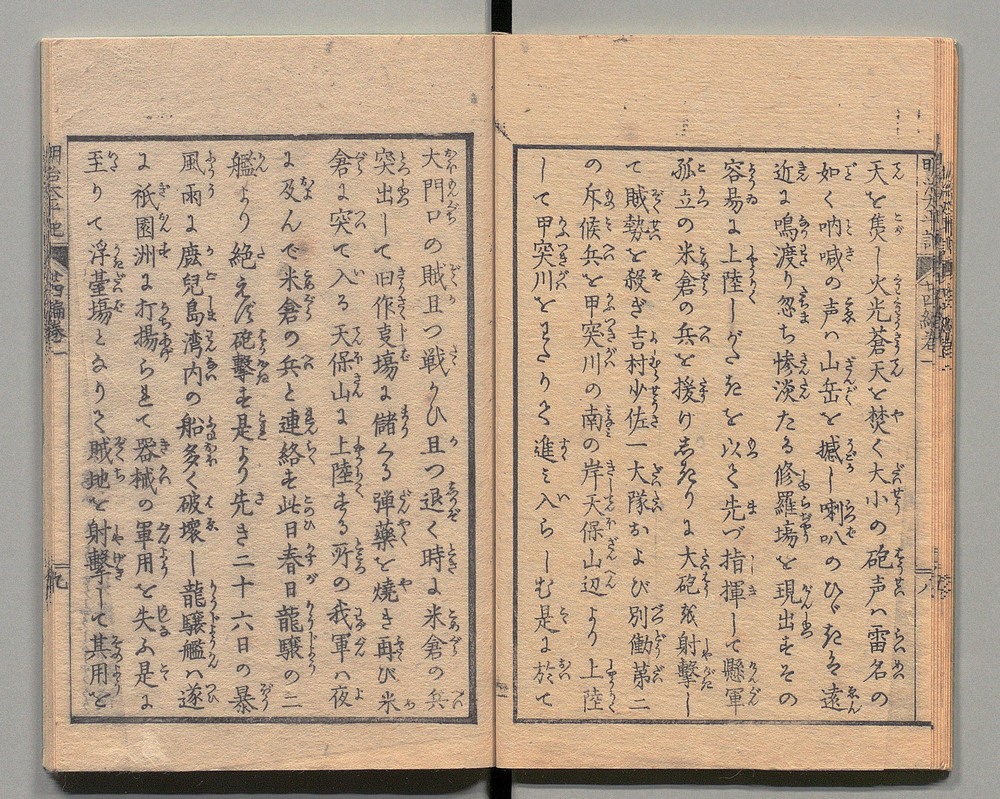 明治太平記 廿四編巻一 八
天を焦し火光蒼天を焚く大小の砲声ハ雷名の
如く吶喊の声ハ山岳を撼し喇叭のひゞきハ遠
近に鳴渡り忽ち惨淡たる修羅塲を現出すその
容易に上陸しがたきを以て先づ指揮して懸軍
孤立の米倉の兵を援け志きりに大砲を射撃し
て賊勢を殺ぎ吉村少佐一大隊および別働第二
の斥候兵を甲突川の南の岸天保山辺より上陸
して甲突川をわたりて進ミ入らしむ是に於て
大門口の賊且つ戦かひ且つ退く時に米倉の兵
突出して旧作事塲に儲くる弾薬を焼き再び米
倉に突て入る天保山に上陸する所の我軍ハ夜
に及んで米倉の兵と連絡す此日春日龍驤の二
艦より絶えず砲撃す是より先き二十六日の暴
風雨に鹿児島湾内の船多く破壊し龍驤艦ハ遂
に祇園洲に打揚られて器械の軍用を失ふ是に
至りて浮臺塲となりて賊地を射撃して其用を
明治太平記 廿四編巻一 九